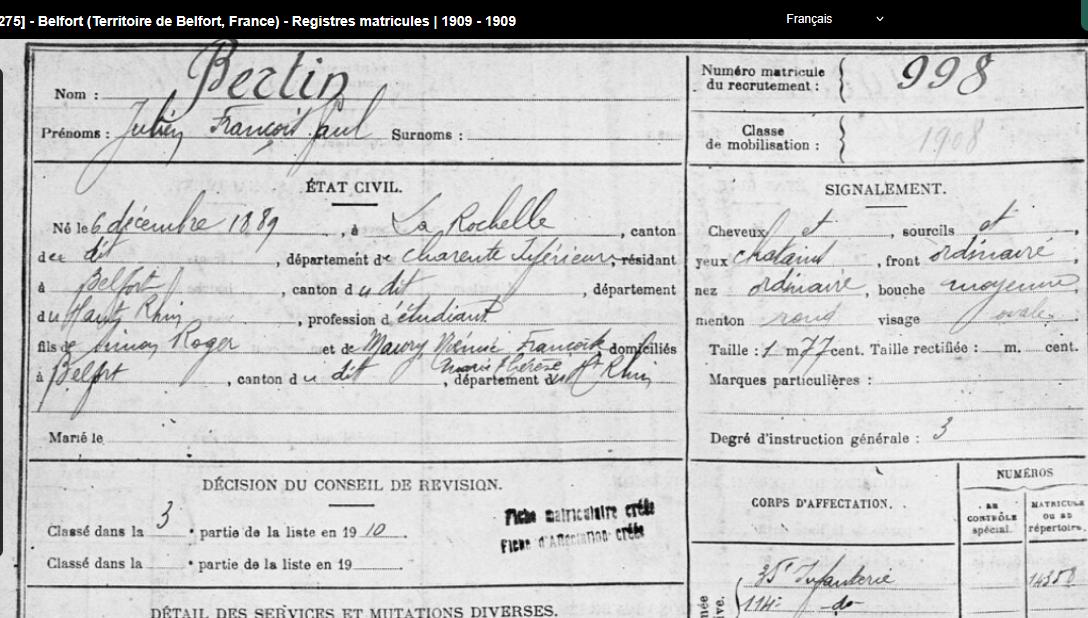 275] - Belfort (Territoire de Belfort, France) - Registres matricules | 1909 - 1909
Français
Nom : Bertin
Prénoms : Julien François Paul Surnoms :
Numéro matricule du recrutement : 998
Classe de mobilisation : 1908
ÉTAT CIVIL.
Né le 6 décembre 1889, à La Rochelle, canton
de dit, département de Charente Inférieure, résidant
à Belfort, canton du dit, département
du Haut Rhin, profession d étudiant
fils de Simon Roger et de Maury, Françoise domiciliés
Marie Thérèse
à Belfort, canton du dit, département du Ht Rhin
Marié le
SIGNALEMENT.
Cheveux et, sourcils et
yeux chatains, front ordinaire,
nez ordinaire, bouche moyenne,
menton rond visage ovale
Taille : 1 m 77 cent. Taille rectifiée : m. cent.
Marques particulières :
Degré d'instruction générale : 3
DÉCISION DU CONSEIL DE REVISION.
Classé dans la 3e partie de la liste en 1910.
Classé dans la e partie de la liste en 19
Fiche matriculaire créée
Fiche d'Affectation créée
CORPS D'AFFECTATION.
NUMÉROS
AU CONTRÔLE spécial.
MATRICULE OU AU répertoire.
35e Infanterie
114e -do-
DÉTAIL DES SERVICES ET MUTATIONS DIVERSES.